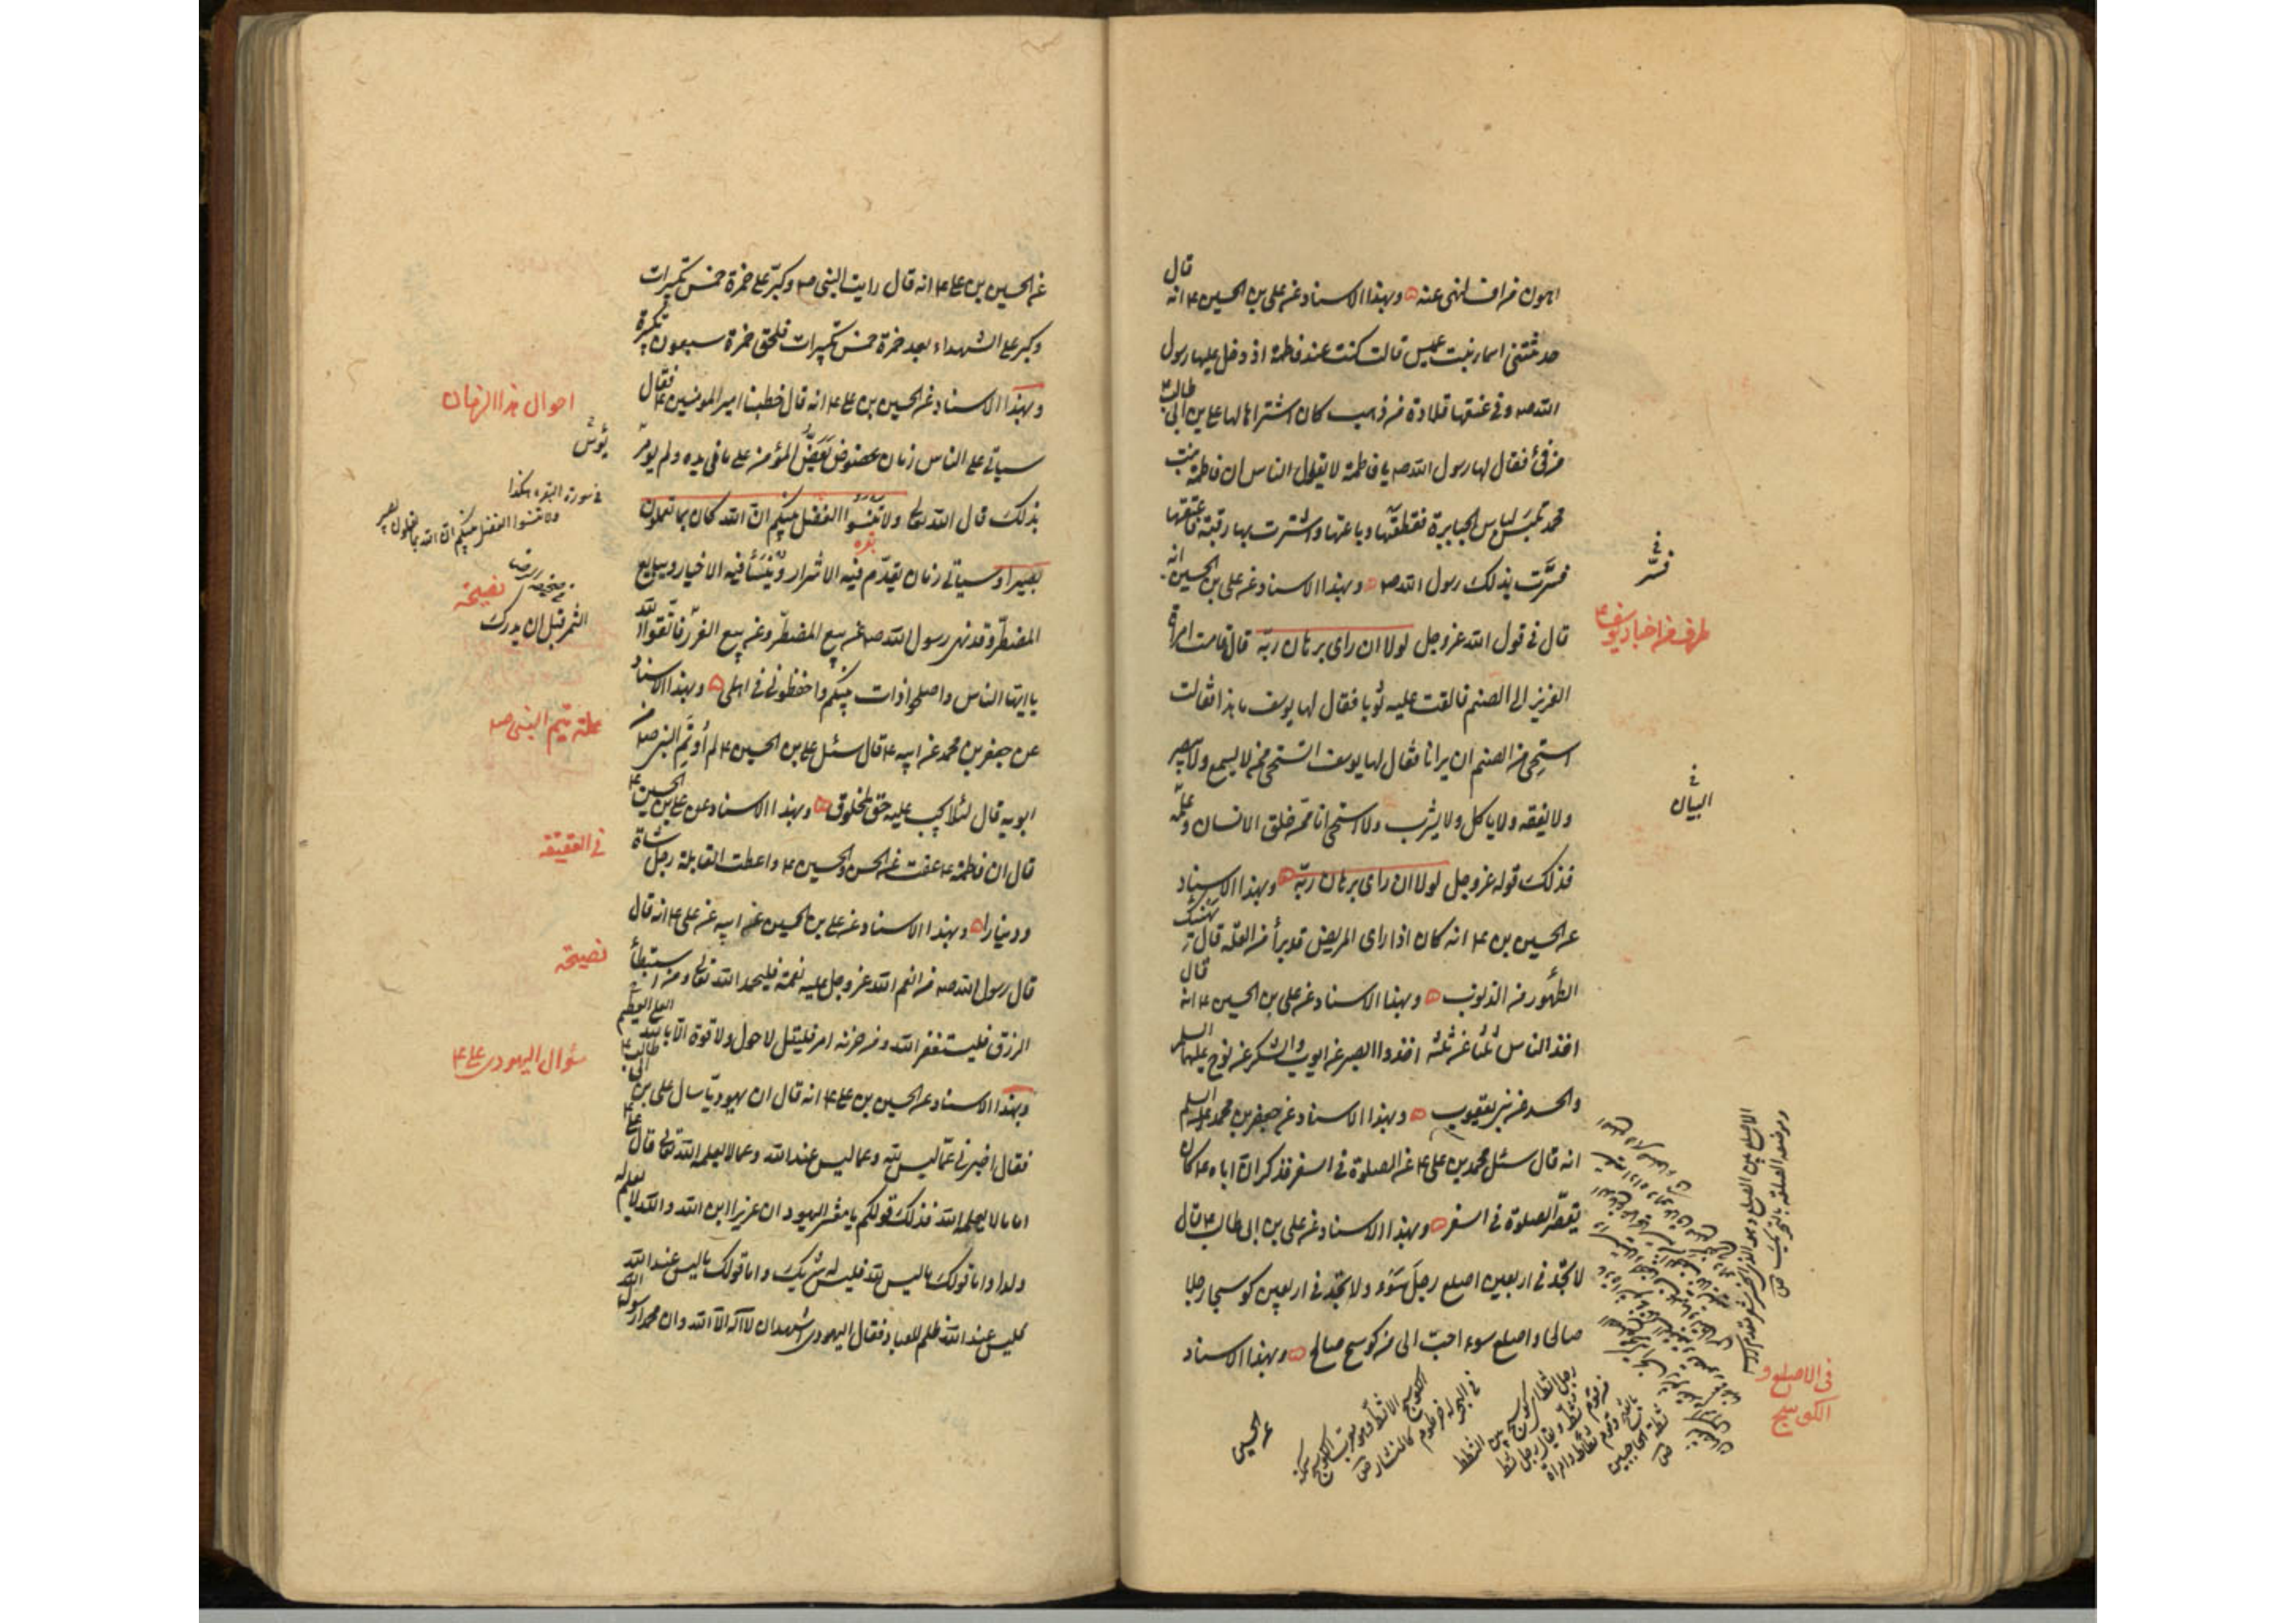 اهون من انف لهى عنه ۵ وبهذا الاسناد عن على بن الحسين ۴ انه قال
حدثتنى اسماء بنت عميس قالت كنت عند فاطمة اذ دخل عليها رسول
الله صه وفى عنقها قلادة من ذهب كان اشتراها لها على بن ابى طالب ۴
من فئ فقال لها رسول الله صه يا فاطمة لا يقول الناس ان فاطمة بنت
محمد تلبس لباس الجبابرة فقطعتها وباعتها واشترت بها رقبة فاعتقتها
فسرت بذلك رسول الله صه ۵ وبهذا الاسناد عن على بن الحسين انه
قال فى قول الله عز وجل لولا ان راى برهان ربه قال قامت امراة
العزيز الى الصنم فالقت عليه ثوبا فقال لها يوسف ما هذا فقالت
استحى من الصنم ان يرانا فقال لها يوسف اتستحى ممن لا يسمع ولا يبصر
ولا يفقه ولا ياكل ولا يشرب ولا استحى انا ممن خلق الانسان وعلمه
فذلك قوله عز وجل لولا ان راى برهان ربه ۵ وبهذا الاسناد
عن الحسين بن ۴ انه كان اذا راى المريض قد برأ من العلة قال يهنئك
الطهور من الذنوب ۵ وبهذا الاسناد عن على بن الحسين ۴ انه قال
اخذ الناس ثلثا عن ثلثه اخذوا الصبر عن ايوب والشكر عن نوح عليهما السلم
والحسد عن بنى يعقوب ۵ وبهذا الاسناد عن جعفر بن محمد عليه السلم
انه قال سئل محمد بن على ۴ عن الصلوة فى السفر فذكر ان اباه ۴ كان
يقصر الصلوة فى السفر ۵ وبهذا الاسناد عن على بن ابى طالب ۴ قال
لا تجد فى اربعين اصلع رجل سوء ولا تجد فى اربعين كوسجا رجلا
صالحا واصلع سوء احب الى من كوسج صالح ۵ وبهذا الاسناد
عن الحسين
فى
فسر
طرف من اخبار يوسف ۴
فى
البيان
الاصلع بين الصلع وهو الذى انحسر شعر مقدم راسه
وموضعه الصلعة بالتحريك ص
فى الاصلع و
الكوسج
عن الحسين بن على ۴ انه قال رايت النبى صه وكبر على حمزة خمس تكبيرات
وكبر على الشهداء بعد حمزة خمس تكبيرات فلحق حمزة سبعون تكبيرة
وبهذا الاسناد عن الحسين بن على ۴ انه قال خطبنا امير المومنين ۴ فقال
سياتى على الناس زمان عضوض يعض المؤمن على ما فى يده ولم يومر
بذلك قال الله تعالى ولا تنسوا الفضل بينكم ان الله كان بما تعملون
بصيرا وسياتى زمان يقدم فيه الاشرار وينسأ فيه الاخيار ويبايع
المضطر وقد نهى رسول الله صه عن بيع المضطر وعن بيع الغرر فاتقوا الله
يا ايها الناس واصلحوا ذات بينكم واحفظونى فى اهلى ۵ وبهذا الاسناد
عن جعفر بن محمد عن ابيه ۴ قال سئل على بن الحسين ۴ لم اوتم النبى صه من
ابويه قال لئلا يجب عليه حق لمخلوق ۵ وبهذا الاسناد عن على بن الحسين ۴
قال ان فاطمة ۴ عقت عن الحسن والحسين ۴ واعطت القابلة رجل شاة
ودينارا ۵ وبهذا الاسناد عن على بن الحسين عن ابيه عن على ۴ انه قال
قال رسول الله صه من انعم الله عز وجل عليه نعمة فليحمد الله تعالى ومن استبطأ
الرزق فليستغفر الله ومن حزنه امر فليقل لا حول ولا قوة الا بالله العلى العظيم
وبهذا الاسناد عن الحسين بن على ۴ انه قال ان يهوديا سال على بن ابى طالب ۴
فقال اخبرنى عما ليس لله وعما ليس عند الله وعما لا يعلمه الله تعالى قال على ۴
اما ما لا يعلمه الله فذلك قولكم يا معشر اليهود ان عزيرا ابن الله والله لا يعلم له
ولدا واما قولك ما ليس لله فليس له شريك واما قولك ما ليس عند الله
فليس عند الله ظلم للعباد فقال اليهودى اشهد ان لا اله الا الله وان محمدا رسول الله
احوال هذا الزمان
فى سورة البقره هكذا
ولا تنسوا الفضل بينكم ان الله بما تعملون بصير
بقره
نصيحة
الثمر قبل ان يدرك
علة يتم النبى صه
فى العقيقه
نصيحة
سؤال اليهودى على ۴